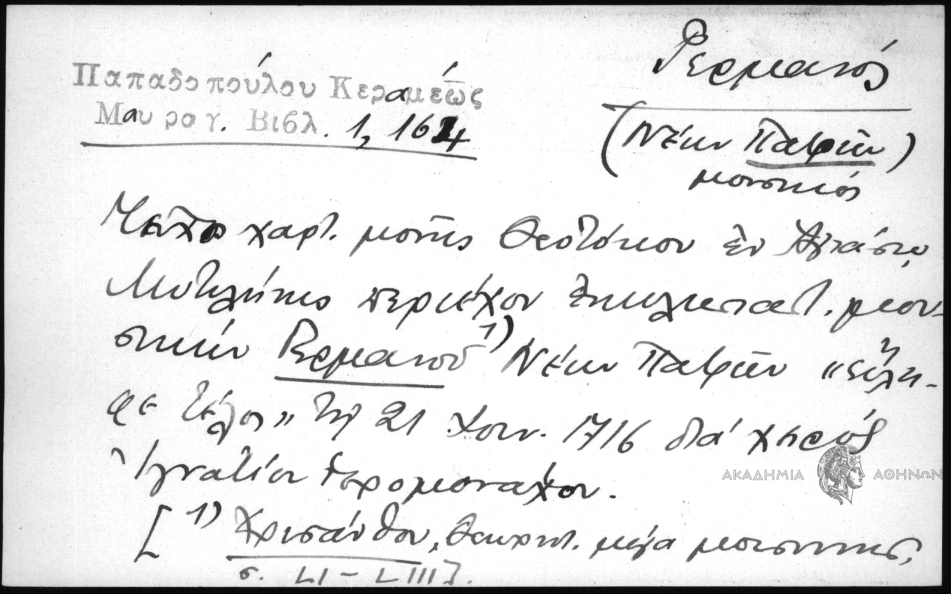 Παπαδοπούλου Κεραμέως
Μαυρογ. Βιβλ. 1, 164
Γερμανός
(Νέων Πατρῶν)
μουσικός
Τεῦχος χαρτ. μονῆς Θεοτόκου ἐν Ἀγιάσῳ
Μυτιλήνης περιέχον ἐκκλησιαστ. μου-
σικὴν Γερμανοῦ 1) Νέων Πατρῶν «εἴλη-
φε τέλος» τῇ 21 Ἰουν. 1716 διὰ χειρός
Ἰγνατίου ἱερομονάχου.
[ 1) Χρυσάνθου, θεωρητ. μέγα μουσικῆς,
σ. LI – LIII].
ΑΚΑΔΗΜΙΑ ΑΘΗΝΩΝ